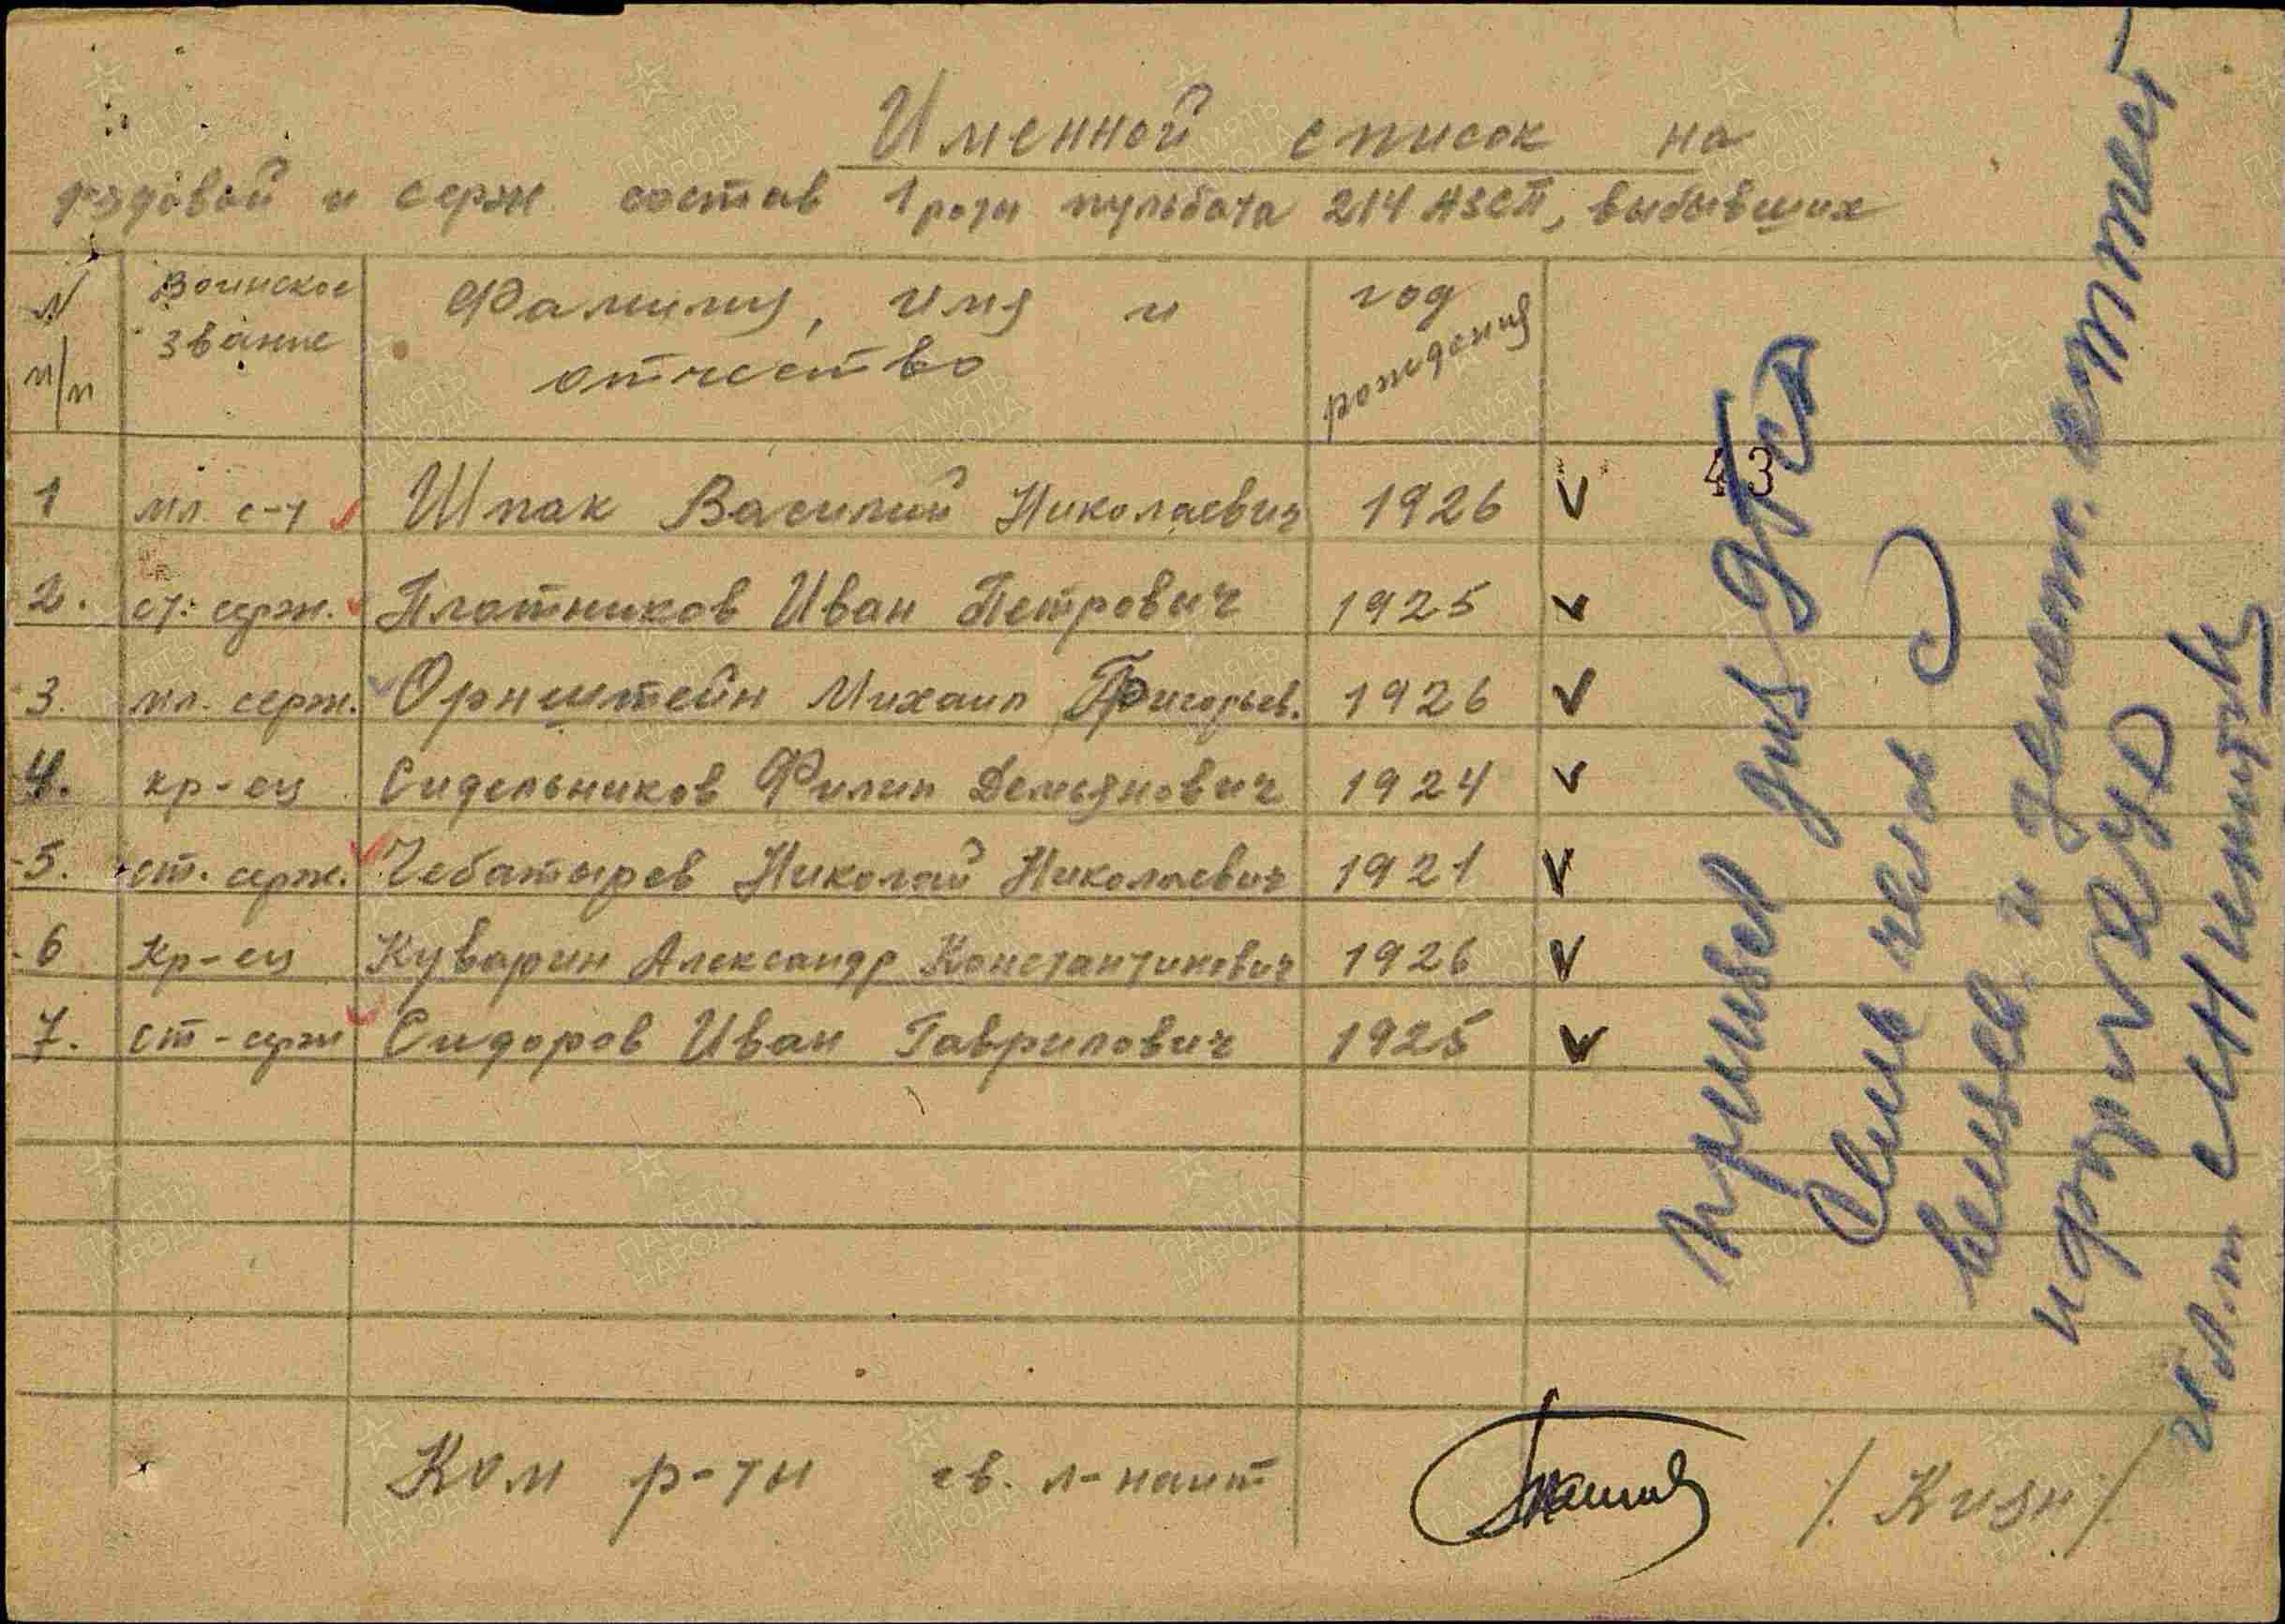 Именной список на
рядовой и серж состав 1 роты пульбата 214 АЗСП, выбывших
N п/п
Воинское звание
Фамилия, имя и отчество
год рождения
1 мл. с-т Шпак Василий Николаевич 1926 V
2. ст. серж. Плотников Иван Петрович 1925 V
3. мл. серж. Орнштейн Михаил Григорьев. 1926 V
4. кр-ец Сидельников Филип Демьянович 1924 V
5. ст. серж. Чебатырев Николай Николаевич 1921 V
6 Кр-ец Куварин Александр Константинович 1926 V
7. ст-серж Сидоров Иван Гаврилович 1925 V
43
Принял для
семь челов
вещев. и
Ком р-ты гв. л-нант